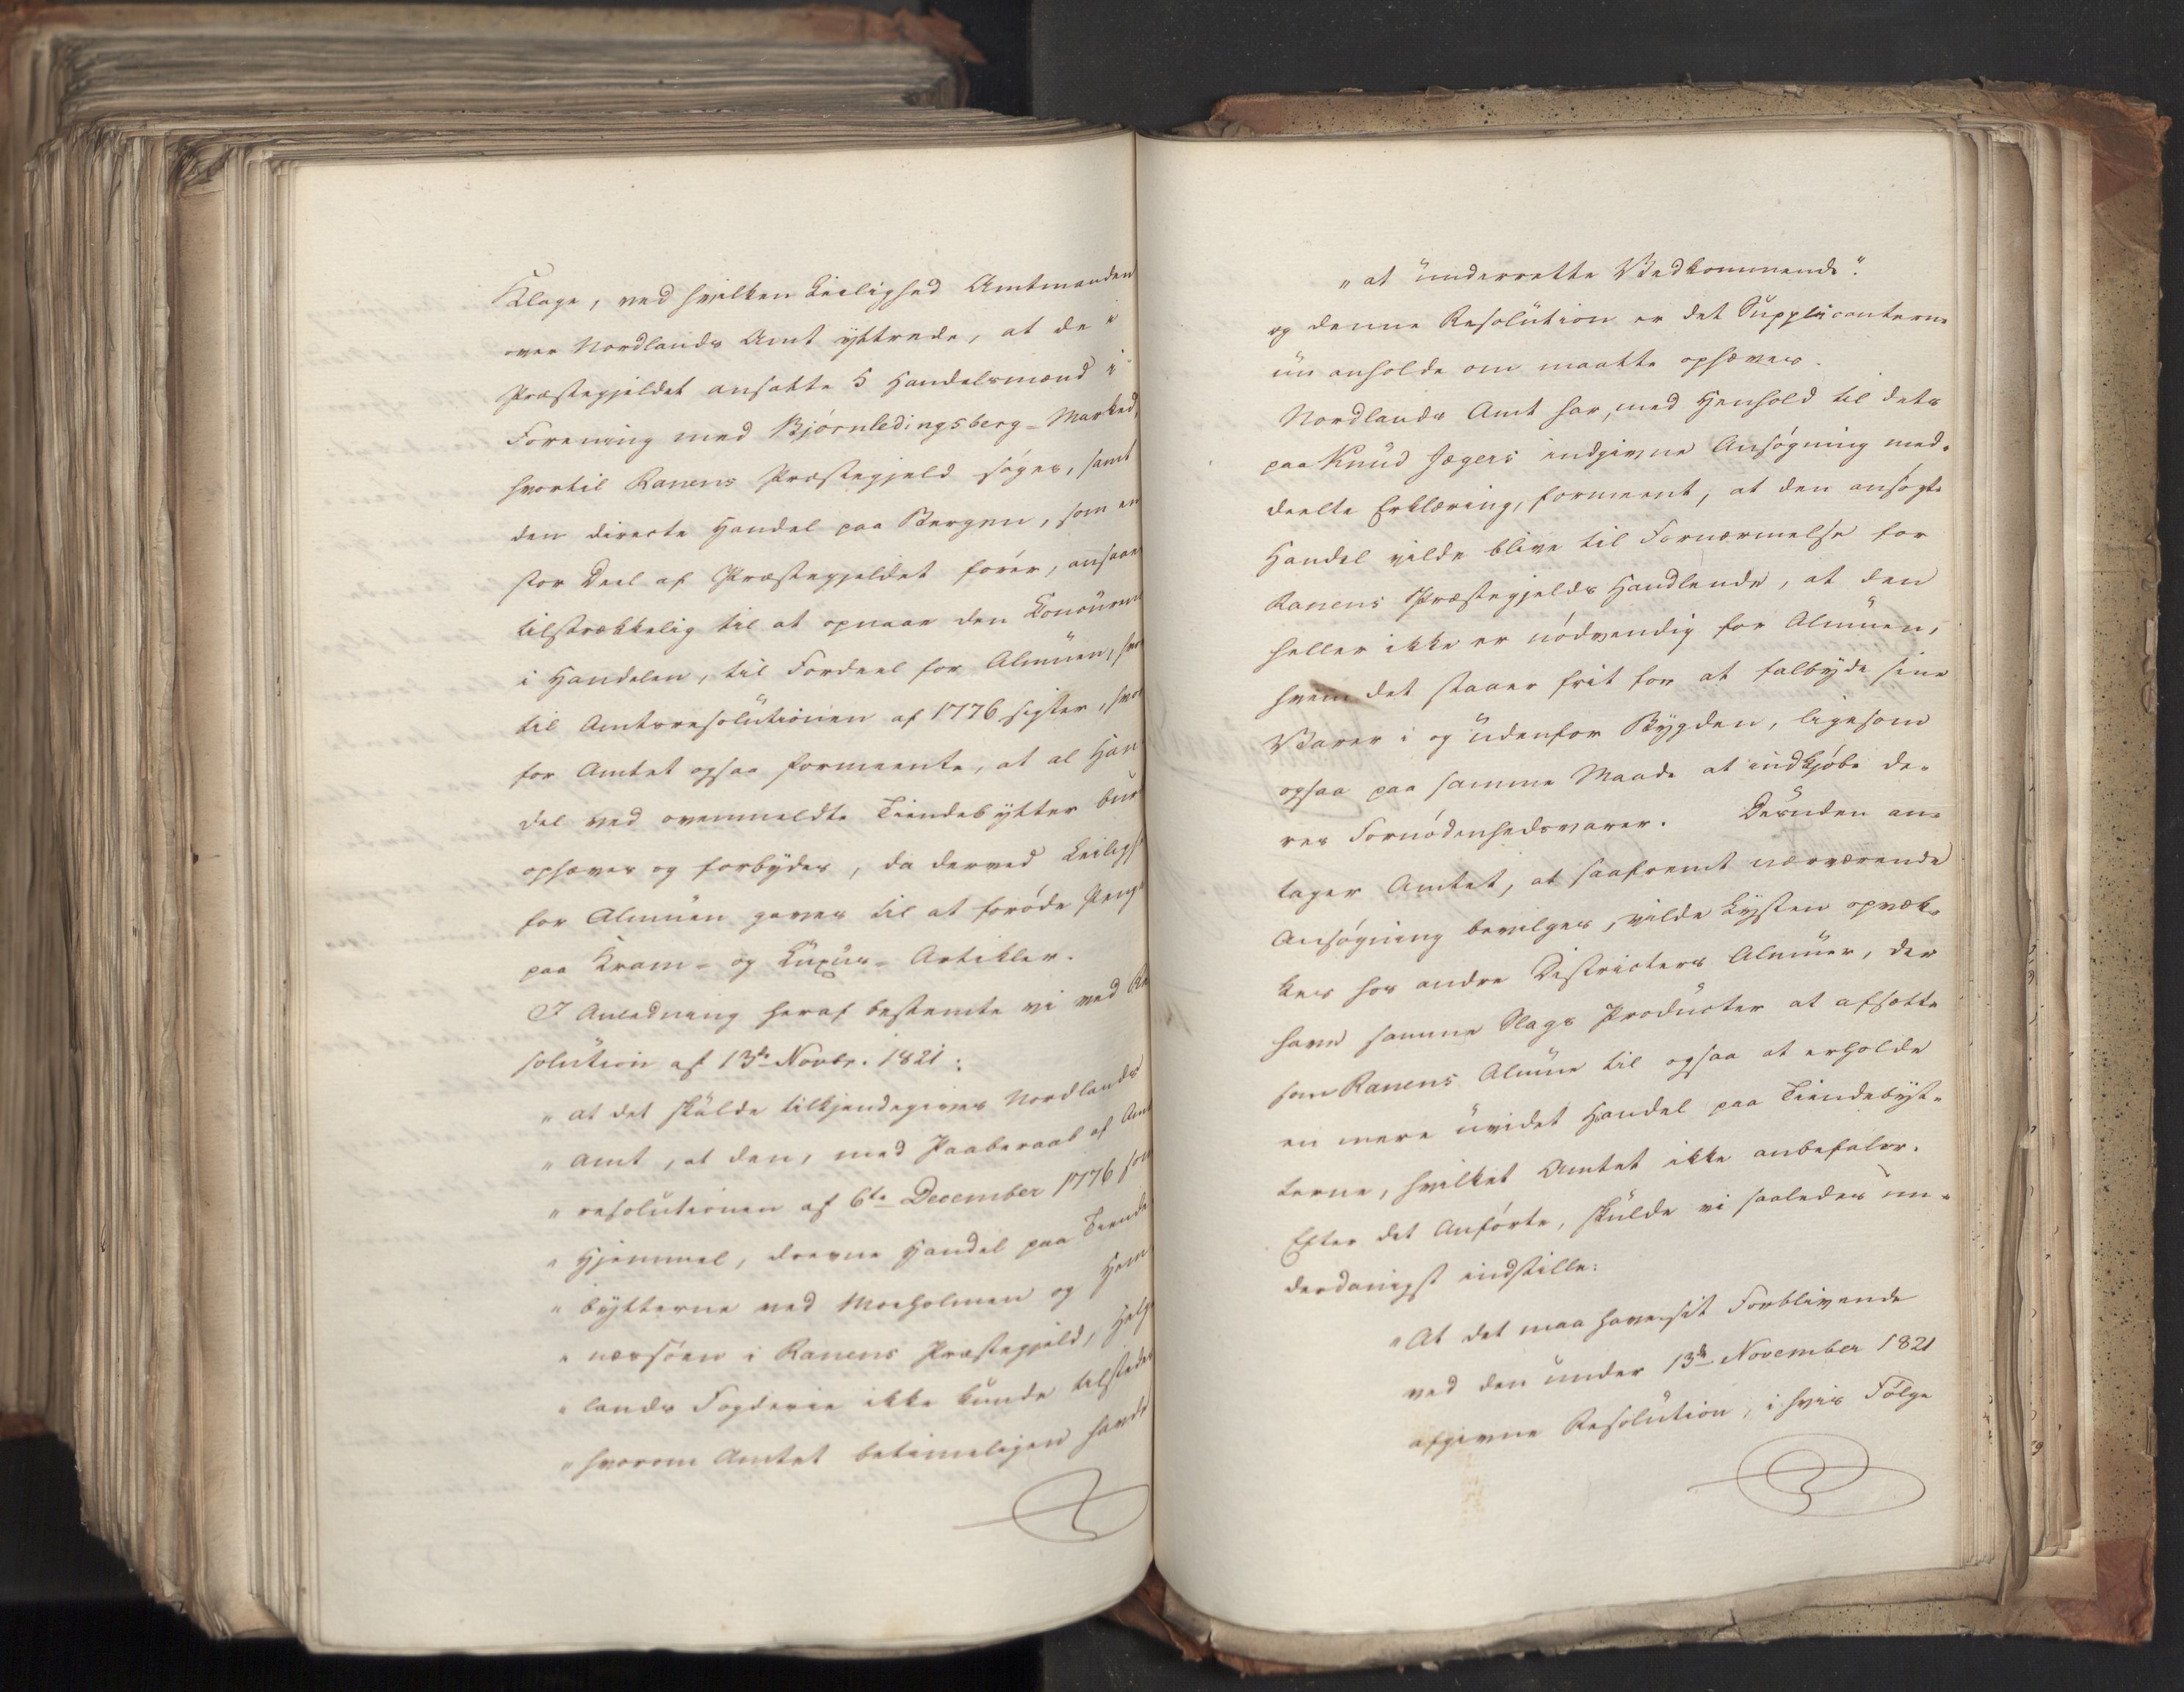 Klage, ved hvilken Leilighed Amtmanden
over Nordlands Amt yttrede, at de i
Præstegjeldet ansatte 5 Handelsmænd i
Forening med Bjørnledingsberg-Marked,
hvortil Ranens Præstegjeld søger, samt
den directe Handel paa Bergen, som en
stor Deel af Præstegjeldet fører, ansaaes
tilstrækkelig til at opnaae den
i Handelen, til Fordeel for Almuen,
til Amtsresolutionen af 1776 sigter,
for Amtet ogsaa formeente, at al Han
del ved ovenmeldte Tiendebytter bur
ophæves og forbydes, da derved Leiligh
for Almuen gaves til at forøde Penge
paa Kram- og Luxus-Artikler.
I Anledning heraf bestemte vi ved Re
solution af 13de Novbr. 1821:
"at det skulde tilkjendegives Nordlands
"Amt, at den, med Paaberaab af Amts
"resolutionen af 6te December 1776 som
"Hjemmel, drevne Handel paa Tiende
"bytterne ved Moeholmen og Hem
"næssøen i Ranens Præstegjeld, Helge
"lands Fogderie ikke kunde tilstedes
"hvorom Amtet betimeligen havde
"at underrette Vedkommende".
og denne Resolution er det Supplicanterne
nu anholde om maatte ophæves.
Nordlands Amt har, med Henhold til dets
paa Knud Jægers indgivne Ansøgning med-
deelte Erklæring, formeent, at den ansøgte
Handel vilde blive til Fornærmelse for
Ranens Præstegjelds Handlende, at den
heller ikke er nødvendig for Almuen,
hvem det staaer frit for at falbyde sine
Varer i og udenfor Bygden, ligesom
ogsaa paa samme Maade at indkjøbe de-
res Fornødenhedsvarer. Desuden an-
tager Amtet, at saafremt nærværende
Ansøgning bevilges, vilde Lysten opvæk-
kes hos andre Districters Almuer, der
have samme Slags Producter at afsætte
som Ranens Almue til ogsaa at erholde
en mere udvidet Handel paa Tiendebyt-
terne, hvilket Amtet ikke anbefaler.
Efter det Anførte, skulde vi saaledes un-
derdanigst indstille:
"At det maa have sit Forblivende
ved den under 13de November 1821
afgivne Resolution, i hvis Følge